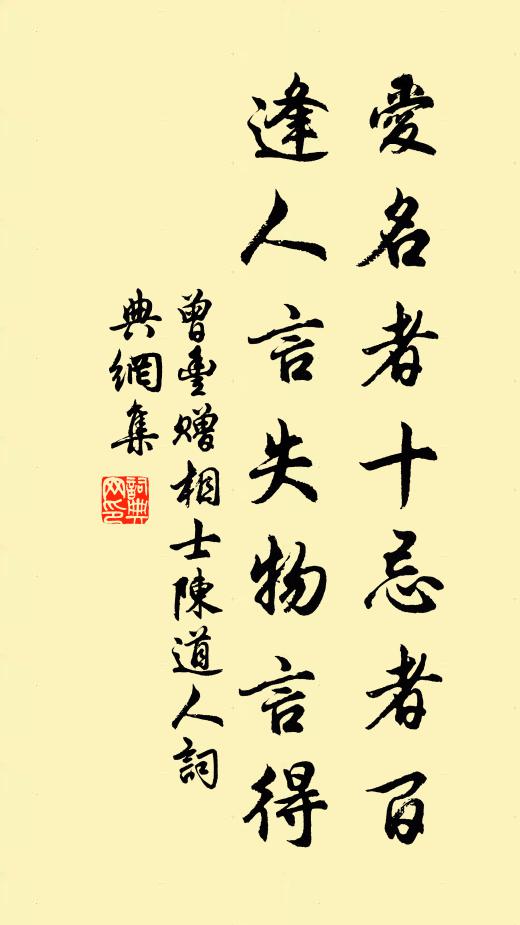 愛名者十忌者百
逢人言失物言得
曾豐贈相士陳道人詞
典網集
詞典
网印